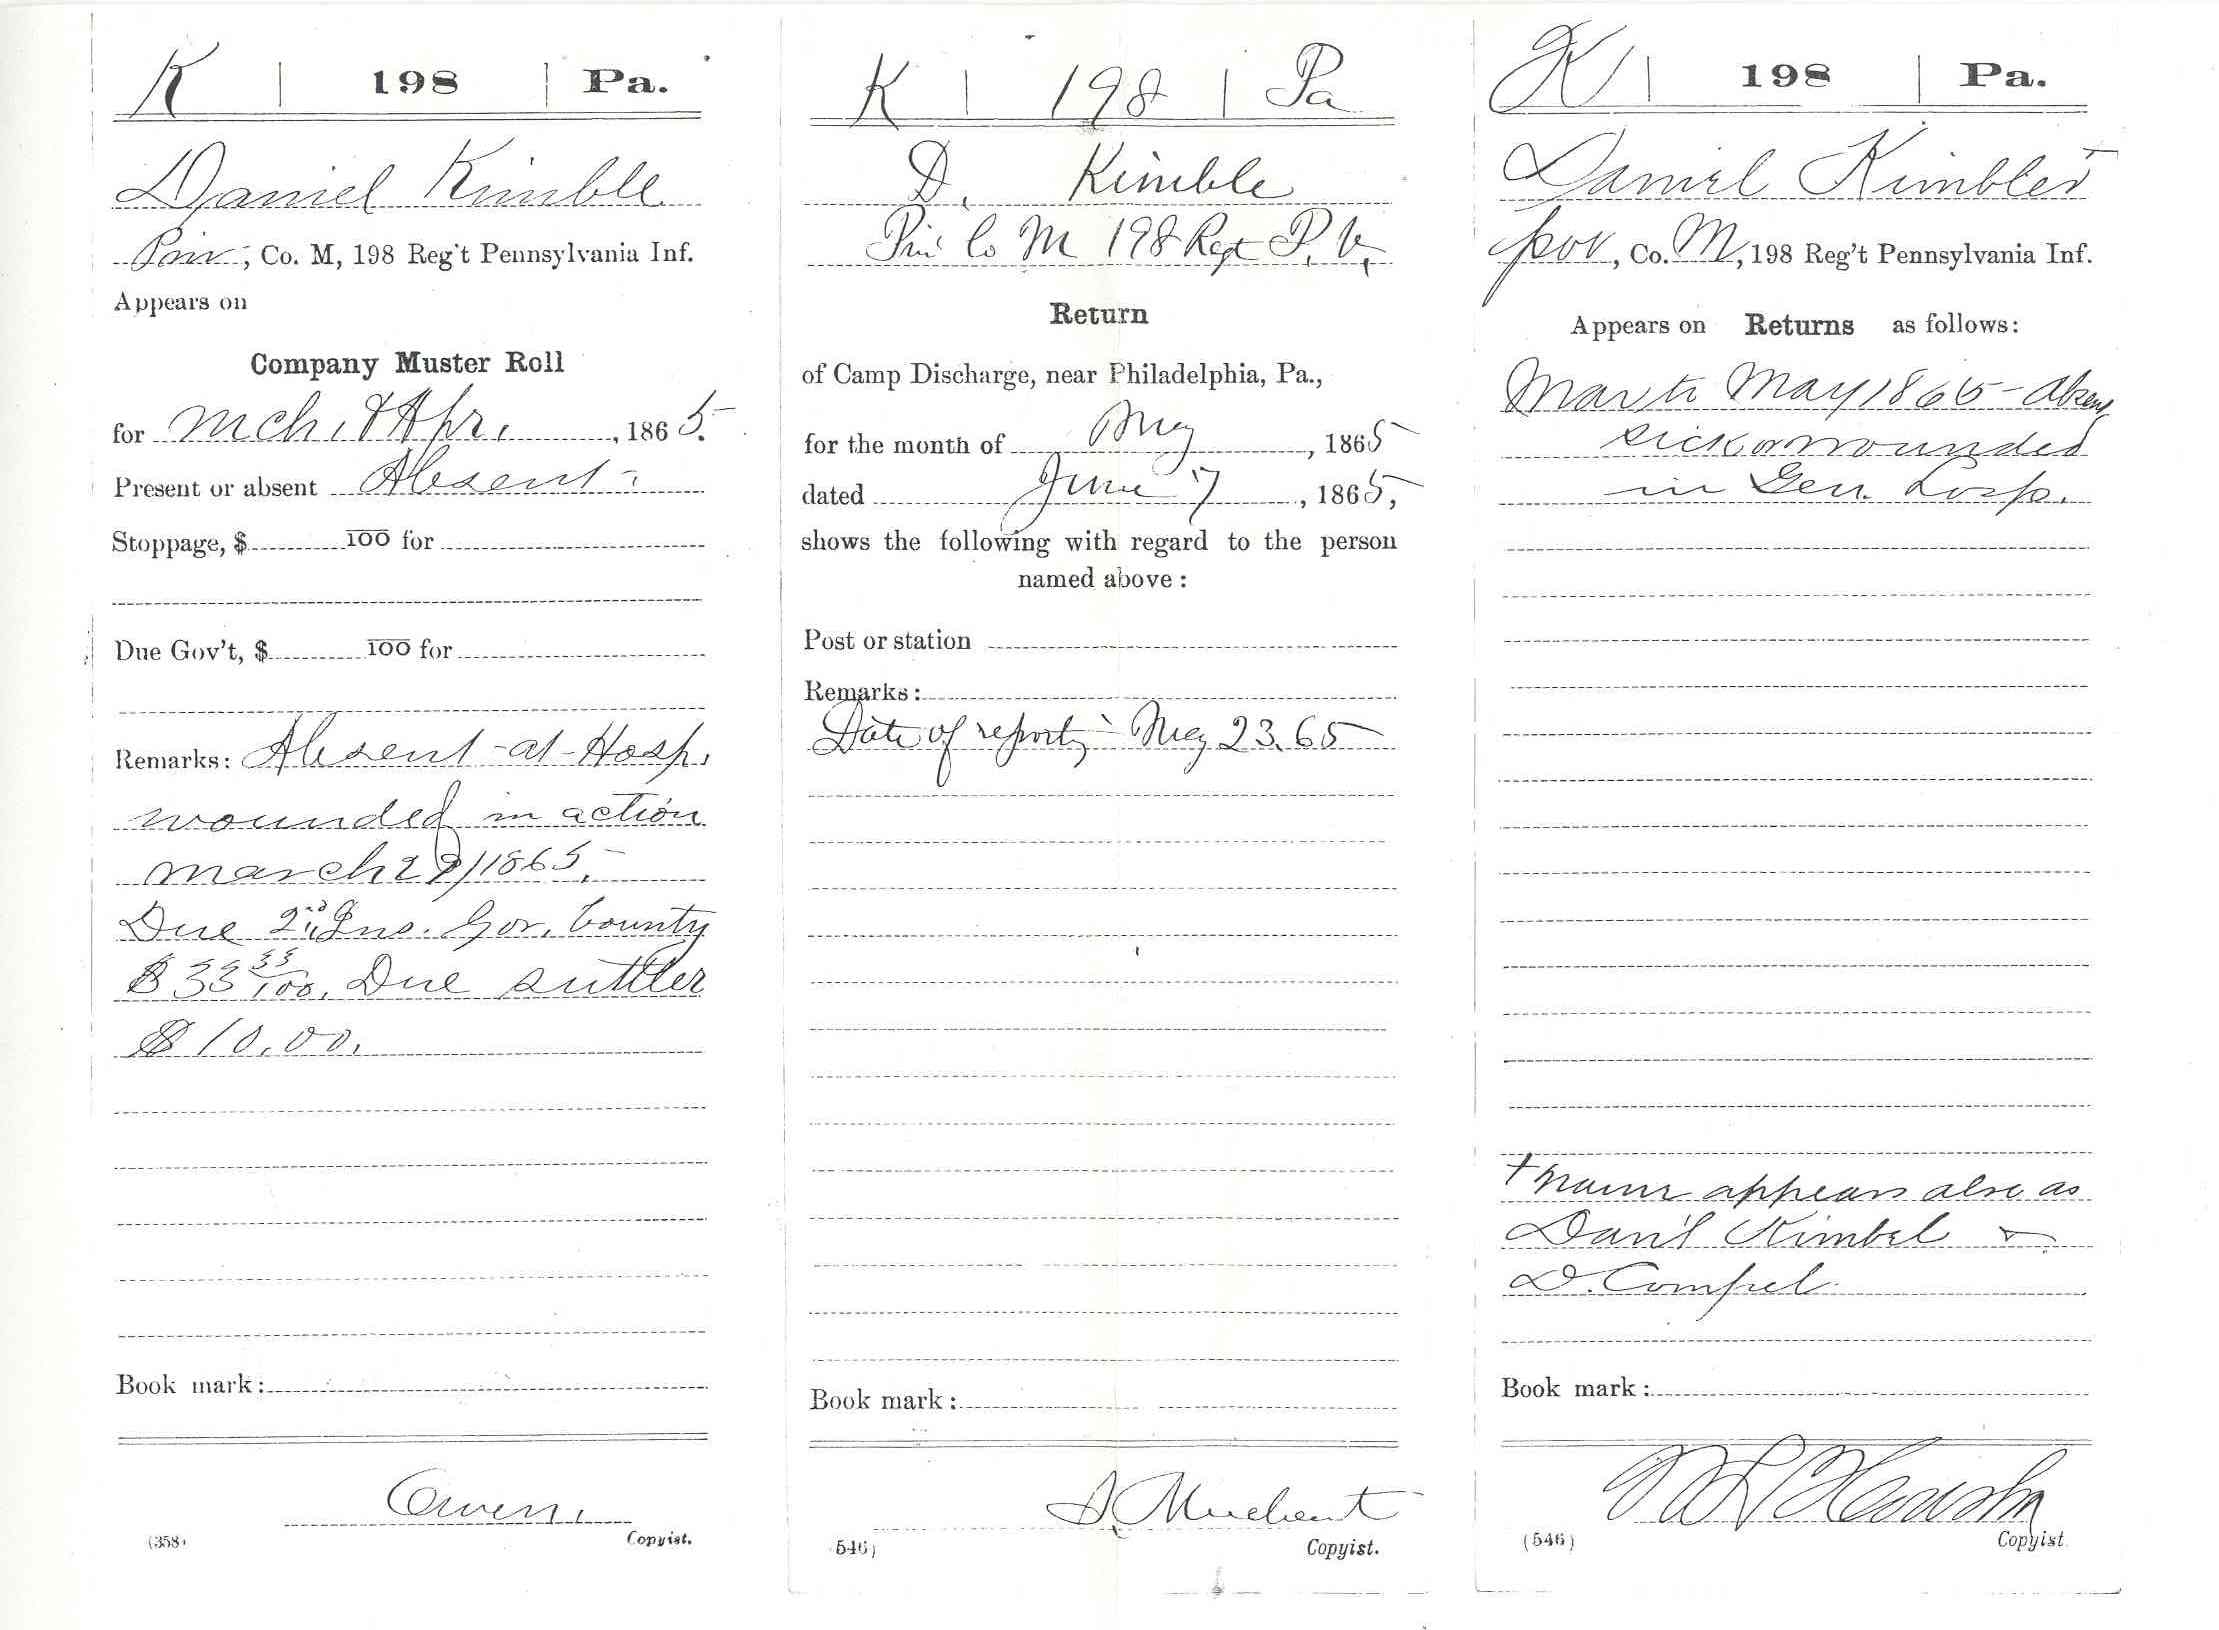 K | 198 | Pa.
Daniel Kimble
Priv, Co. M, 198 Reg't Pennsylvania Inf.
Appears on
Company Muster Roll
for Mch. & Apr., 1865.
Present or absent Absent
Stoppage, $ 100 for
Due Gov't, $ 100 for
Remarks: Absent at Hosp.
wounded in action
March 29/1865.
Due 2nd Ins. Gov. bounty
$33 33/100. Due suttler
$10.00.
Book mark:
Owen,
(358) Copyist.
K | 198 | Pa
D. Kimble
Priv Co M 198 Regt P.V.
Return
of Camp Discharge, near Philadelphia, Pa.,
for the month of May, 1865
dated June 7, 1865,
shows the following with regard to the person
named above:
Post or station
Remarks:
Date of reporting May 23. 65
Book mark:
Copyist.
546)
K | 198 | Pa.
Daniel Kimble †
pov, Co. M, 198 Reg't Pennsylvania Inf.
Appears on Returns as follows:
Mar to May 1865 - absent
sick or wounded
in Gen. Hosp.
† Name appears also as
Dan'l Kimbel &
D. Compel.
Book mark:
(546) Copyist.